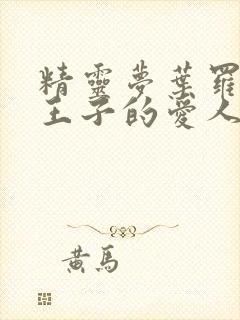 精靈夢葉羅
王子的愛人
黃馬